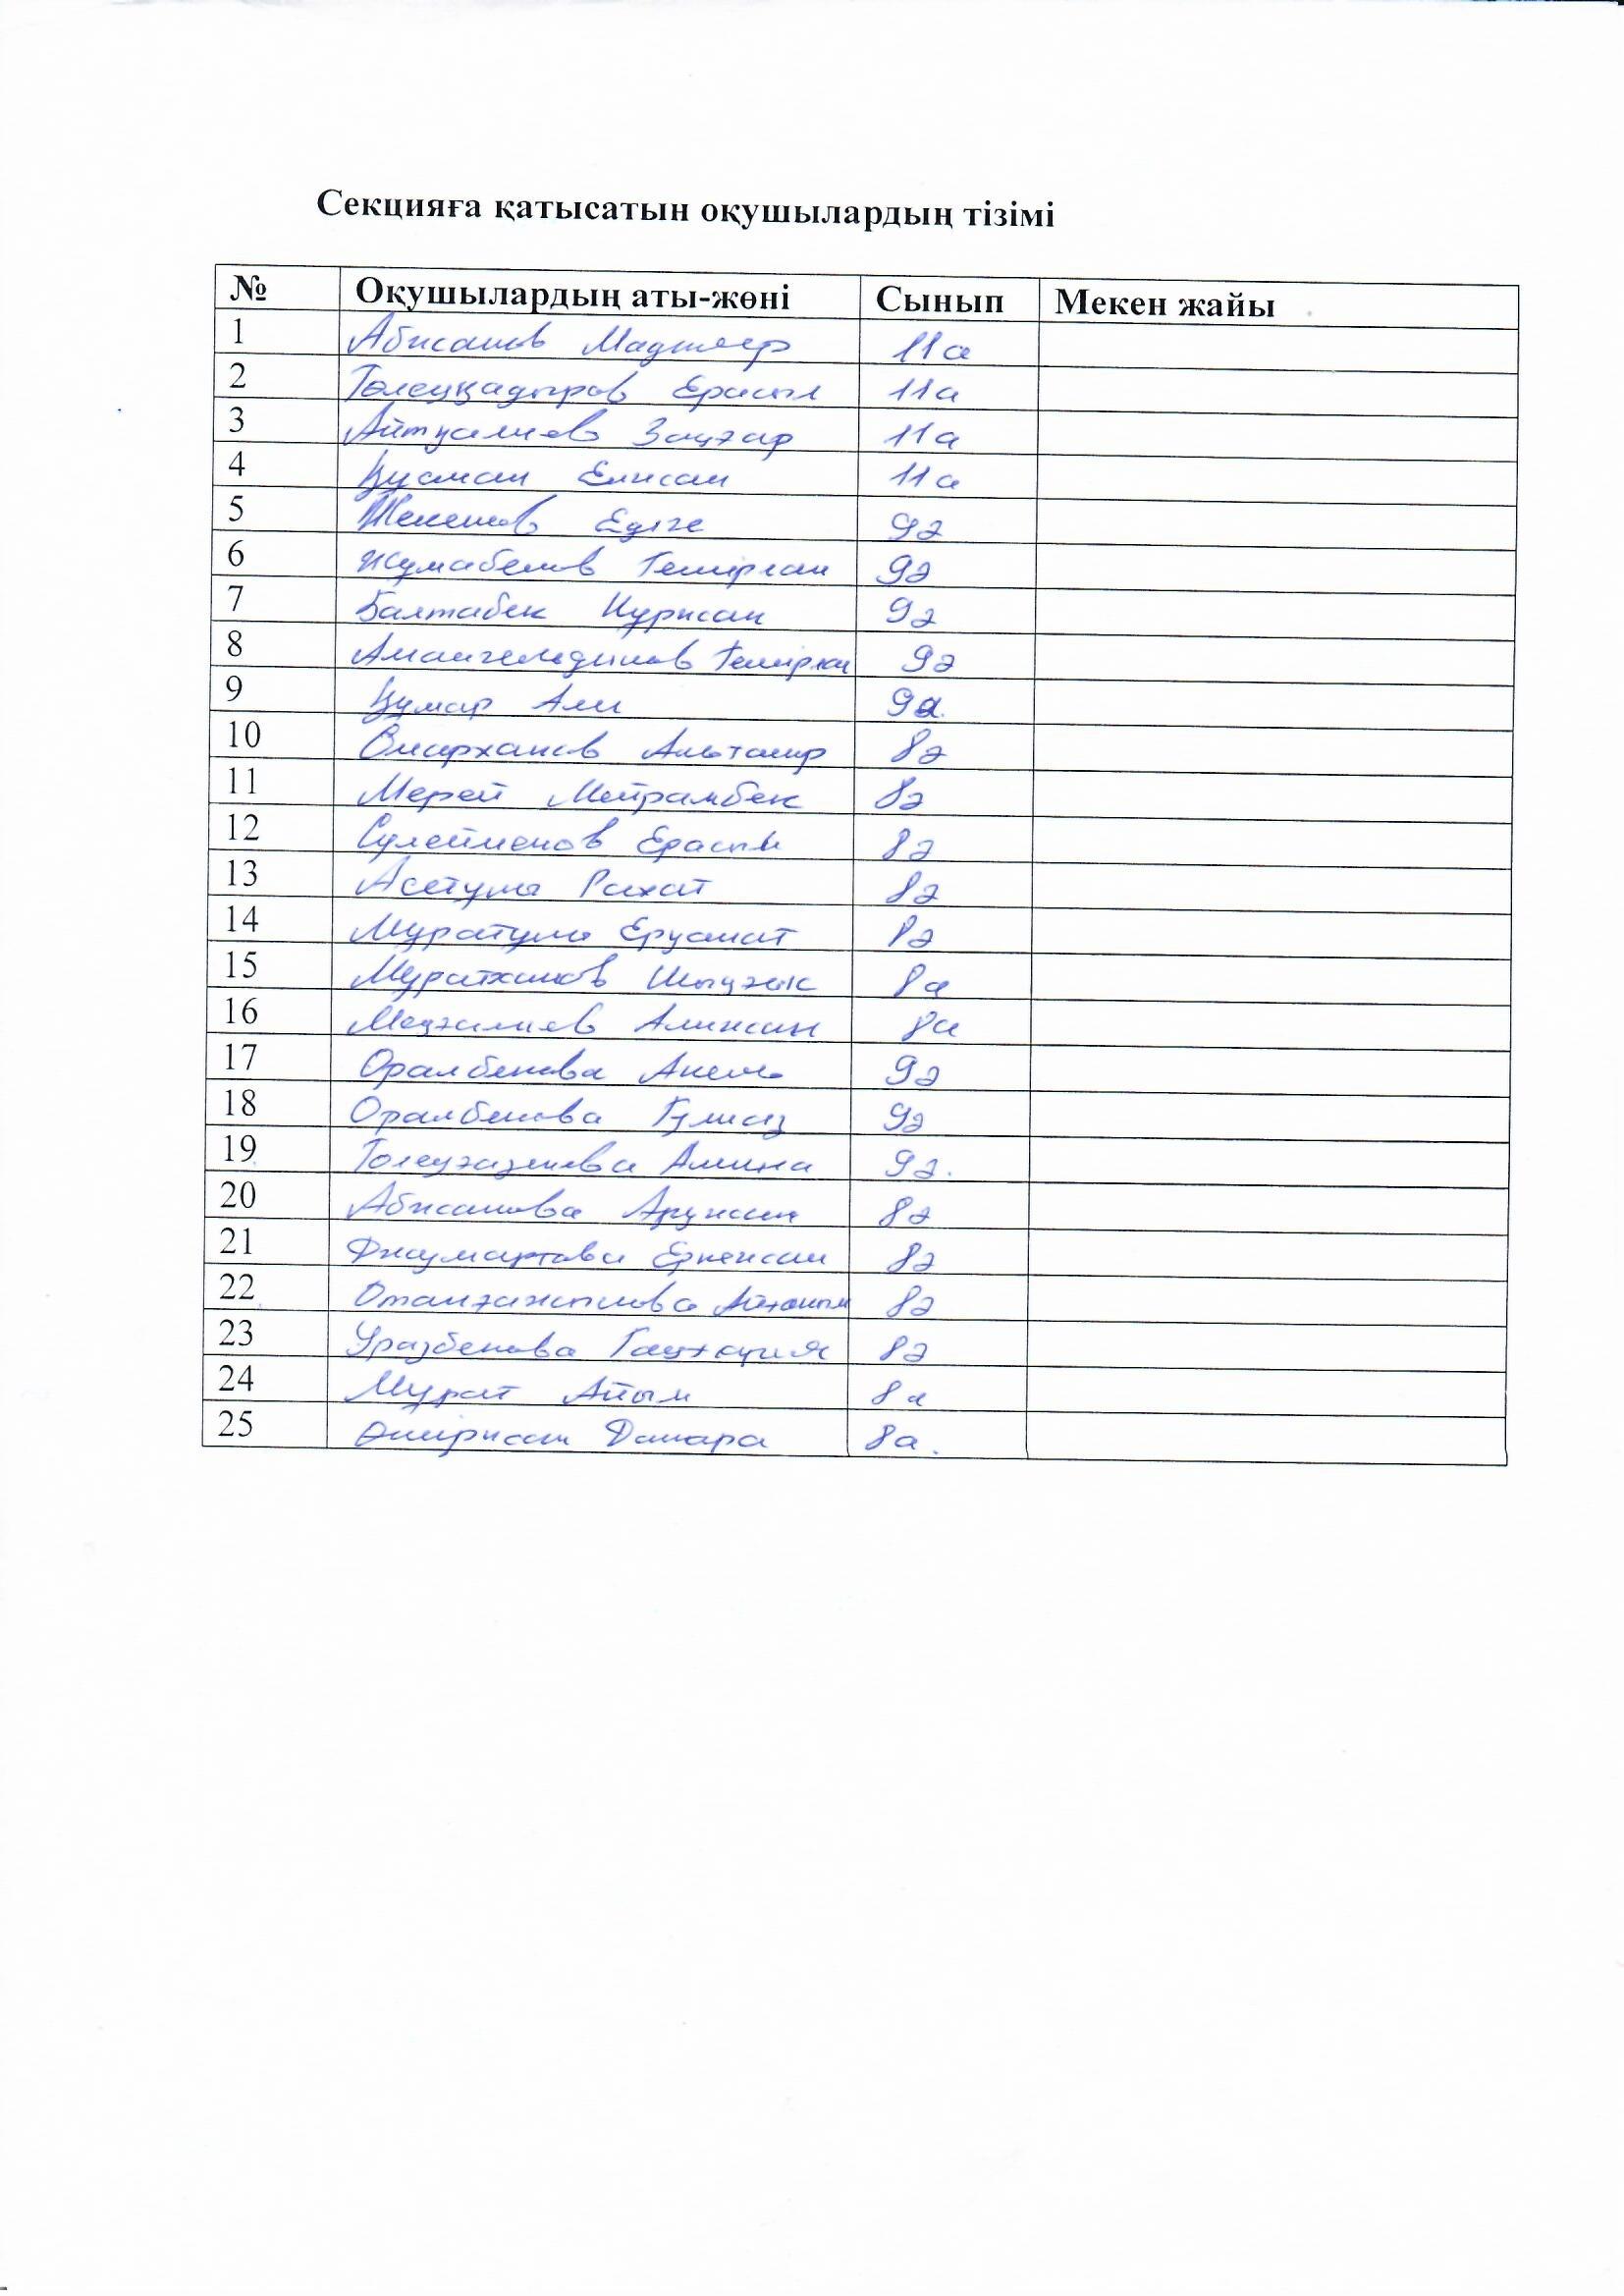 Секцияға қатысатын оқушылардың тізімі
№ Оқушылардың аты-жөні Сынып Мекен жайы
1 Абжанов Мадияр 11а
2 Төлеуқадыров Ерасыл 11а
3 Айтуалиев Заңғар 11а
4 Құсман Елжан 11а
5 Жекенов Едіге 9ә
6 Жумабеков Темірлан 9ә
7 Балтабек Нұржан 9ә
8 Амангельдинов Темірлан 9ә
9 Құмар Али 9а.
10 Омарханов Альтаир 8ә
11 Мерей Мейрамбек 8ә
12 Сүлейменов Ерасыл 8ә
13 Асетұлы Рахат 8ә
14 Мұратұлы 8ә
15 Мұратханов Шыңғыс 8а
16 Алижан 8а
17 Оралбекова Ақела 9ә
18 Оралбекова Гүлназ 9ә
19 Төлеуғазинова Амина 9ә.
20 Абжанова Аружан 8ә
21 Еркежан 8ә
22 8ә
23 Уразбекова 8ә
24 Мұрат Айым 8а
25 Өмиржан Динара 8а.